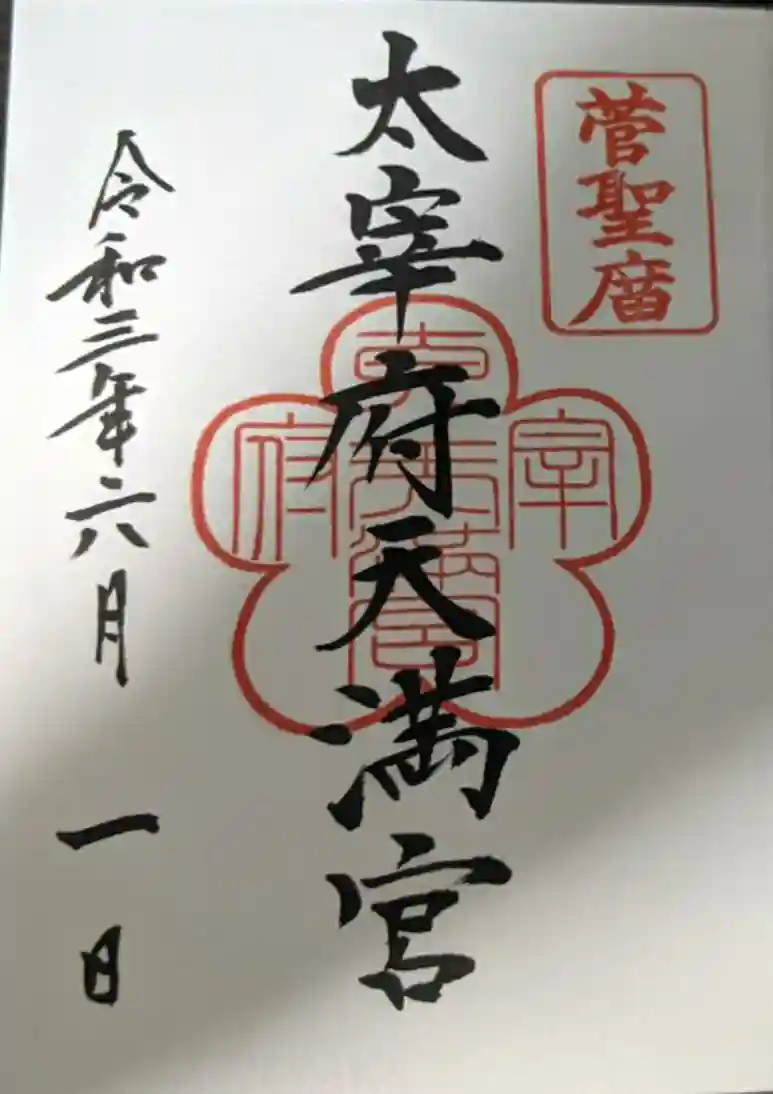 菅聖庿
太宰府天満宮
令和三年六月一日